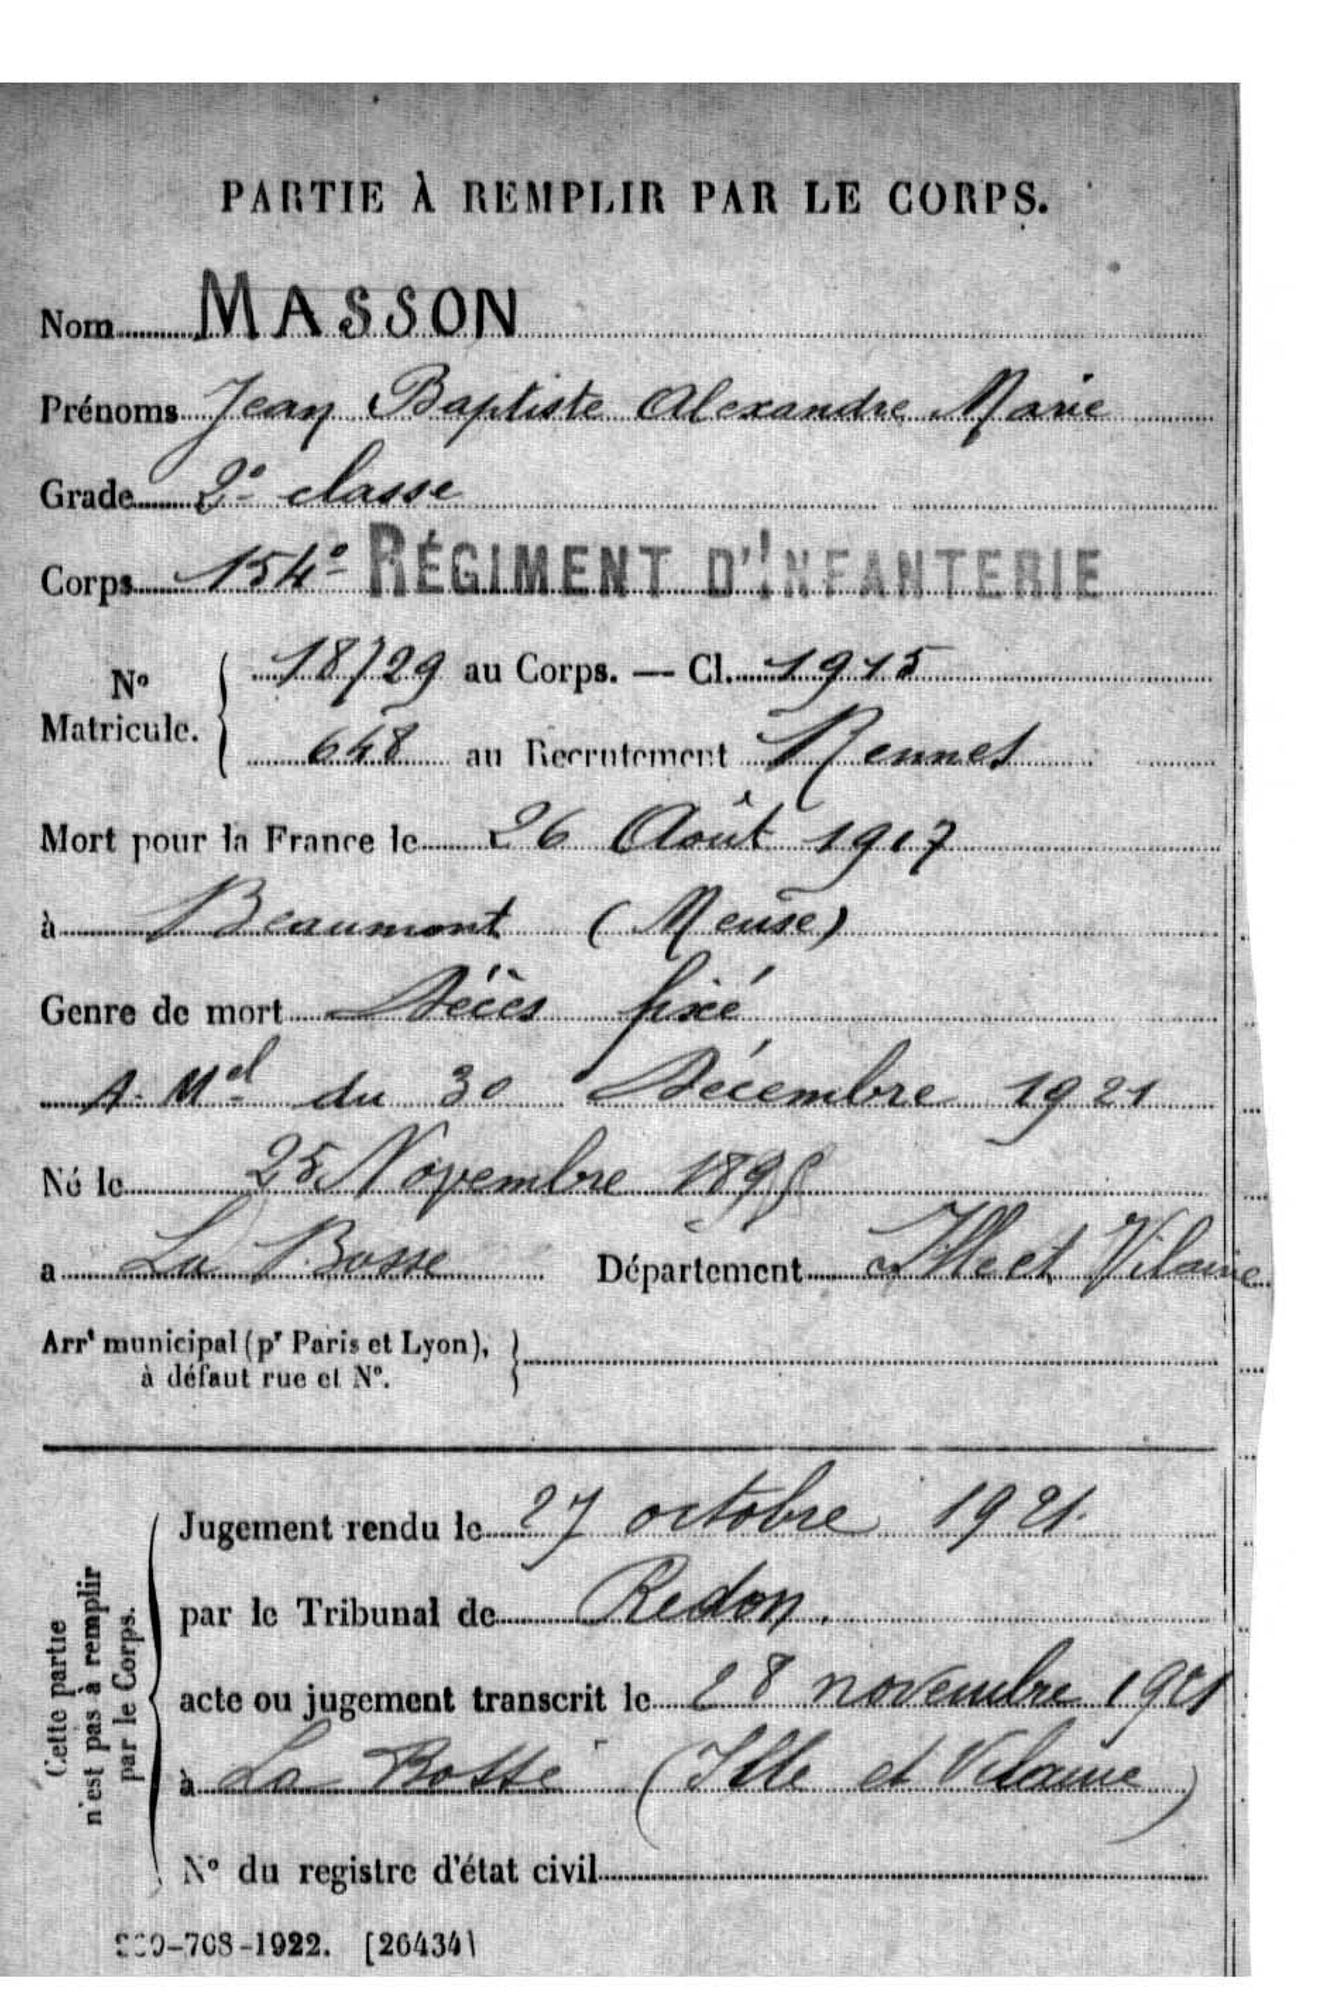 PARTIE À REMPLIR PAR LE CORPS.
Nom MASSON
Prénoms Jean Baptiste Alexandre Marie
Grade 2e classe
Corps 154e RÉGIMENT D'INFANTERIE
No Matricule. { 18729 au Corps. — Cl. 1915
648 au Recrutement Rennes
Mort pour la France le 26 Août 1917
à Beaumont (Meuse)
Genre de mort Décès fixé
A. Mel du 30 Décembre 1921
Né le 25 Novembre 1895
a La Bosse Département Ille et Vilaine
Arrt municipal (pr Paris et Lyon), }
à défaut rue et No.
Cette partie
n'est pas à remplir
par le Corps.
Jugement rendu le 27 octobre 1921.
par le Tribunal de Redon.
acte ou jugement transcrit le 28 novembre 1921
à La Bosse (Ille et Vilaine)
No du registre d'état civil
-708-1922. [26434]